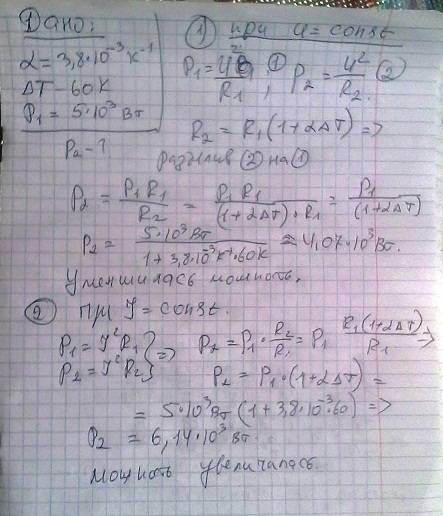 Дано:
α = 3,8·10⁻³ К⁻¹
ΔT - 60К
P₁ = 5·10³ Вт
P₂ - ?
① при U = const
P₁ = U²/R₁ ①, P₂ = U²/R₂ ②
R₂ = R₁(1+αΔT) =>
разделив ② на ①
P₂ = P₁R₁/R₂ = P₁R₁/((1+αΔT)·R₁) = P₁/(1+αΔT)
P₂ = 5·10³Вт/(1+3,8·10⁻³К⁻¹·60К) ≈ 4,07·10³Вт.
Уменшилась мощность.
② при I = const.
P₁ = I²R₁
P₂ = I²R₂ } => P₂ = P₁·R₂/R₁ = P₁ R₁(1+αΔT)/R₁ =>
P₂ = P₁·(1+αΔT) =
= 5·10³Вт(1+3,8·10⁻³·60) =>
P₂ = 6,14·10³Вт.
Мощность увеличалась.